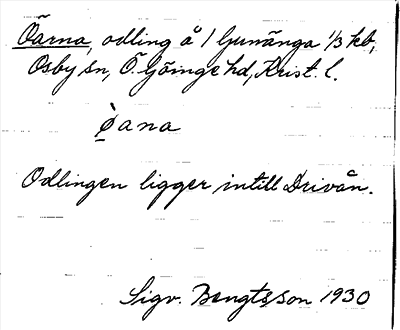 Öarna, odling å 1 Ljunänga 1/3 kb,
Osby sn, Ö. Göinge hd, Krist. l.
ò̱ana
Odlingen ligger intill Drivån.
Sigv. Bengtsson 1930